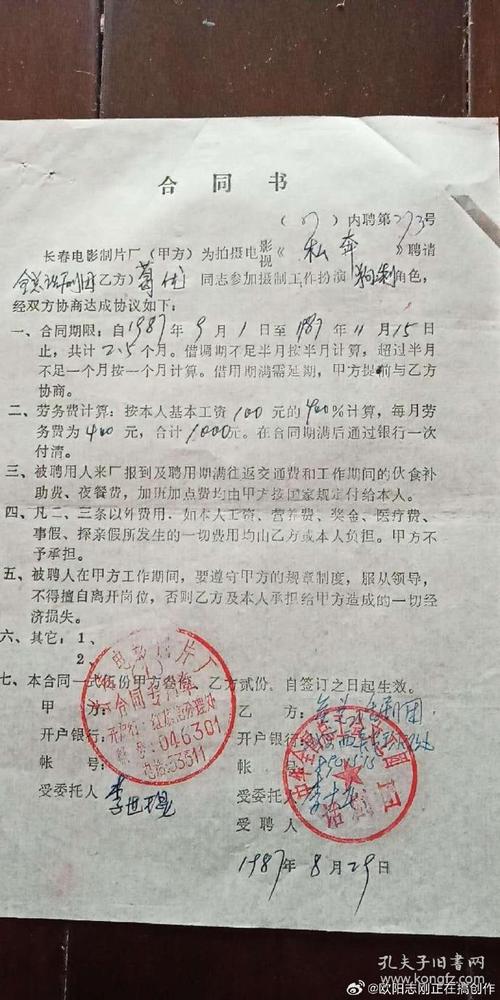 合同书
(87)内聘第273号
长春电影制片厂(甲方)为拍摄电影视《私奔》聘请
全总话剧团乙方)葛优同志参加摄制工作扮演狗剩角色,
经双方协商达成协议如下:
一、合同期限:自1987年9月1日至1987年11月15日
止,共计2.5个月。借调期不足半月按半月计算,超过半月
不足一个月按一个月计算。借用期满需延期,甲方提前与乙方
协商。
二、劳务费计算:按本人基本工资100元的400%计算,每月劳
务费为400元,合计1000元。在合同期满后通过银行一次
付清。
三、被聘用人来厂报到及聘用期满往返交通费和工作期间的伙食补
助费、夜餐费,加班加点费均由甲方按国家规定付给本人。
四、凡二、三条以外费用,如本人工资、营养费、奖金、医疗费、
事假、探亲假所发生的一切费用均由乙方或本人负担。甲方不
予承担。
五、被聘人在甲方工作期间,要遵守甲方的规章制度,服从领导,
不得擅自离开岗位,否则乙方及本人承担给甲方造成的一切经
济损失。
六、其它:1、
2、
七、本合同一式伍份甲方叁份,乙方贰份,自签订之日起生效。
甲方: 乙方:全总话剧团
开户银行: 开户银行:
帐号: 帐号:
受委托人 李世 受委托人
受聘人
1987年8月29日
电影制片厂
合同专用章
046301
电话:53311
话剧团
孔夫子旧书网
@欧阳志刚正在搞创作